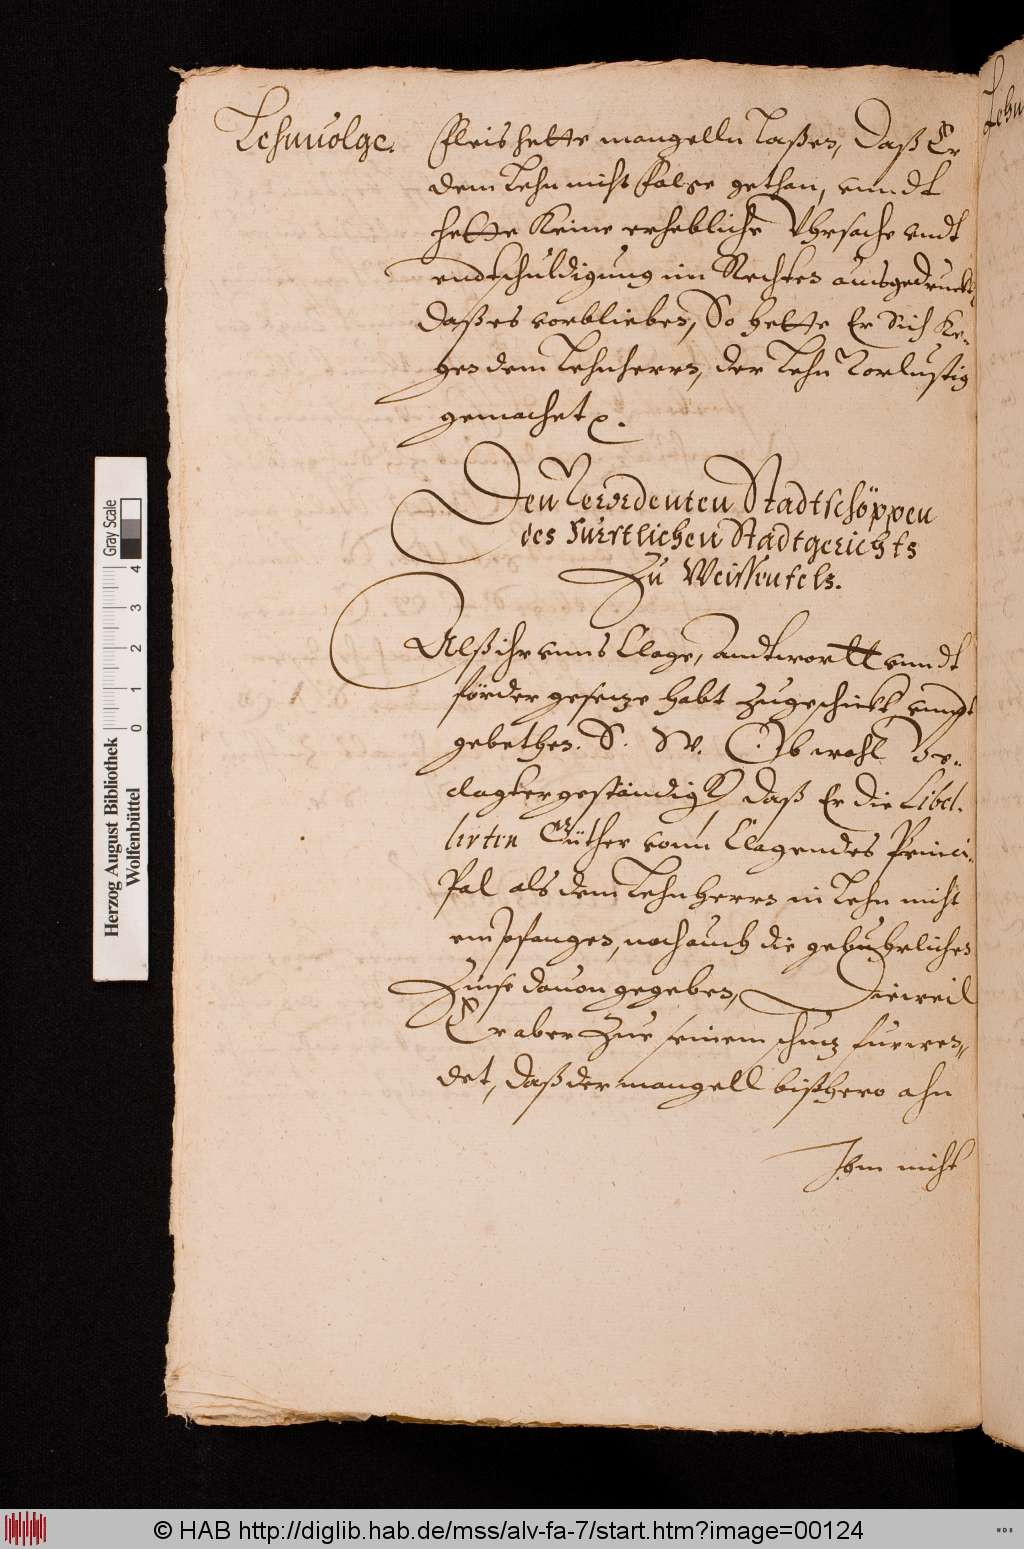 Lehnuolge.
Fleis hette mangelln laßen, Daß Er
dem Lehn nicht folge gethan, vnndt
hette Keine erhebliche Vhrsache vndt
endtschuldigung im Rechten ausgedruckt,
daß es vorblieben, So hette Er Sich Ke-
gen dem Lehnherrn, der Lehn Vorlustig
gemachet
Den Verordenten Stadtschöppen
des Furstlichen Stadtgerichts
Zu Weissenfels.
Alß ihr vnns Clage, Andtwortt vnndt
förder gesetze habt zugeschickt vnndt
gebethen. S. W. Ob wohl Be-
clagter geständig, daß Er die Libel-
lirten Güther vonn Clagendes Princi-
pal als dem Lehnherrn in Lehn nicht
empfangen, noch auch die gebuhrlichen
Zinse dauon gegeben, Dieweil
Er aber Zue seinem schutz furwen-
det, daß der mangell bißhero ahn
Ihm nicht
Lehn
Herzog August Bibliothek
Wolfenbüttel
0 1 2 3 4
Gray Scale
© HAB http://diglib.hab.de/mss/alv-fa-7/start.htm?image=00124